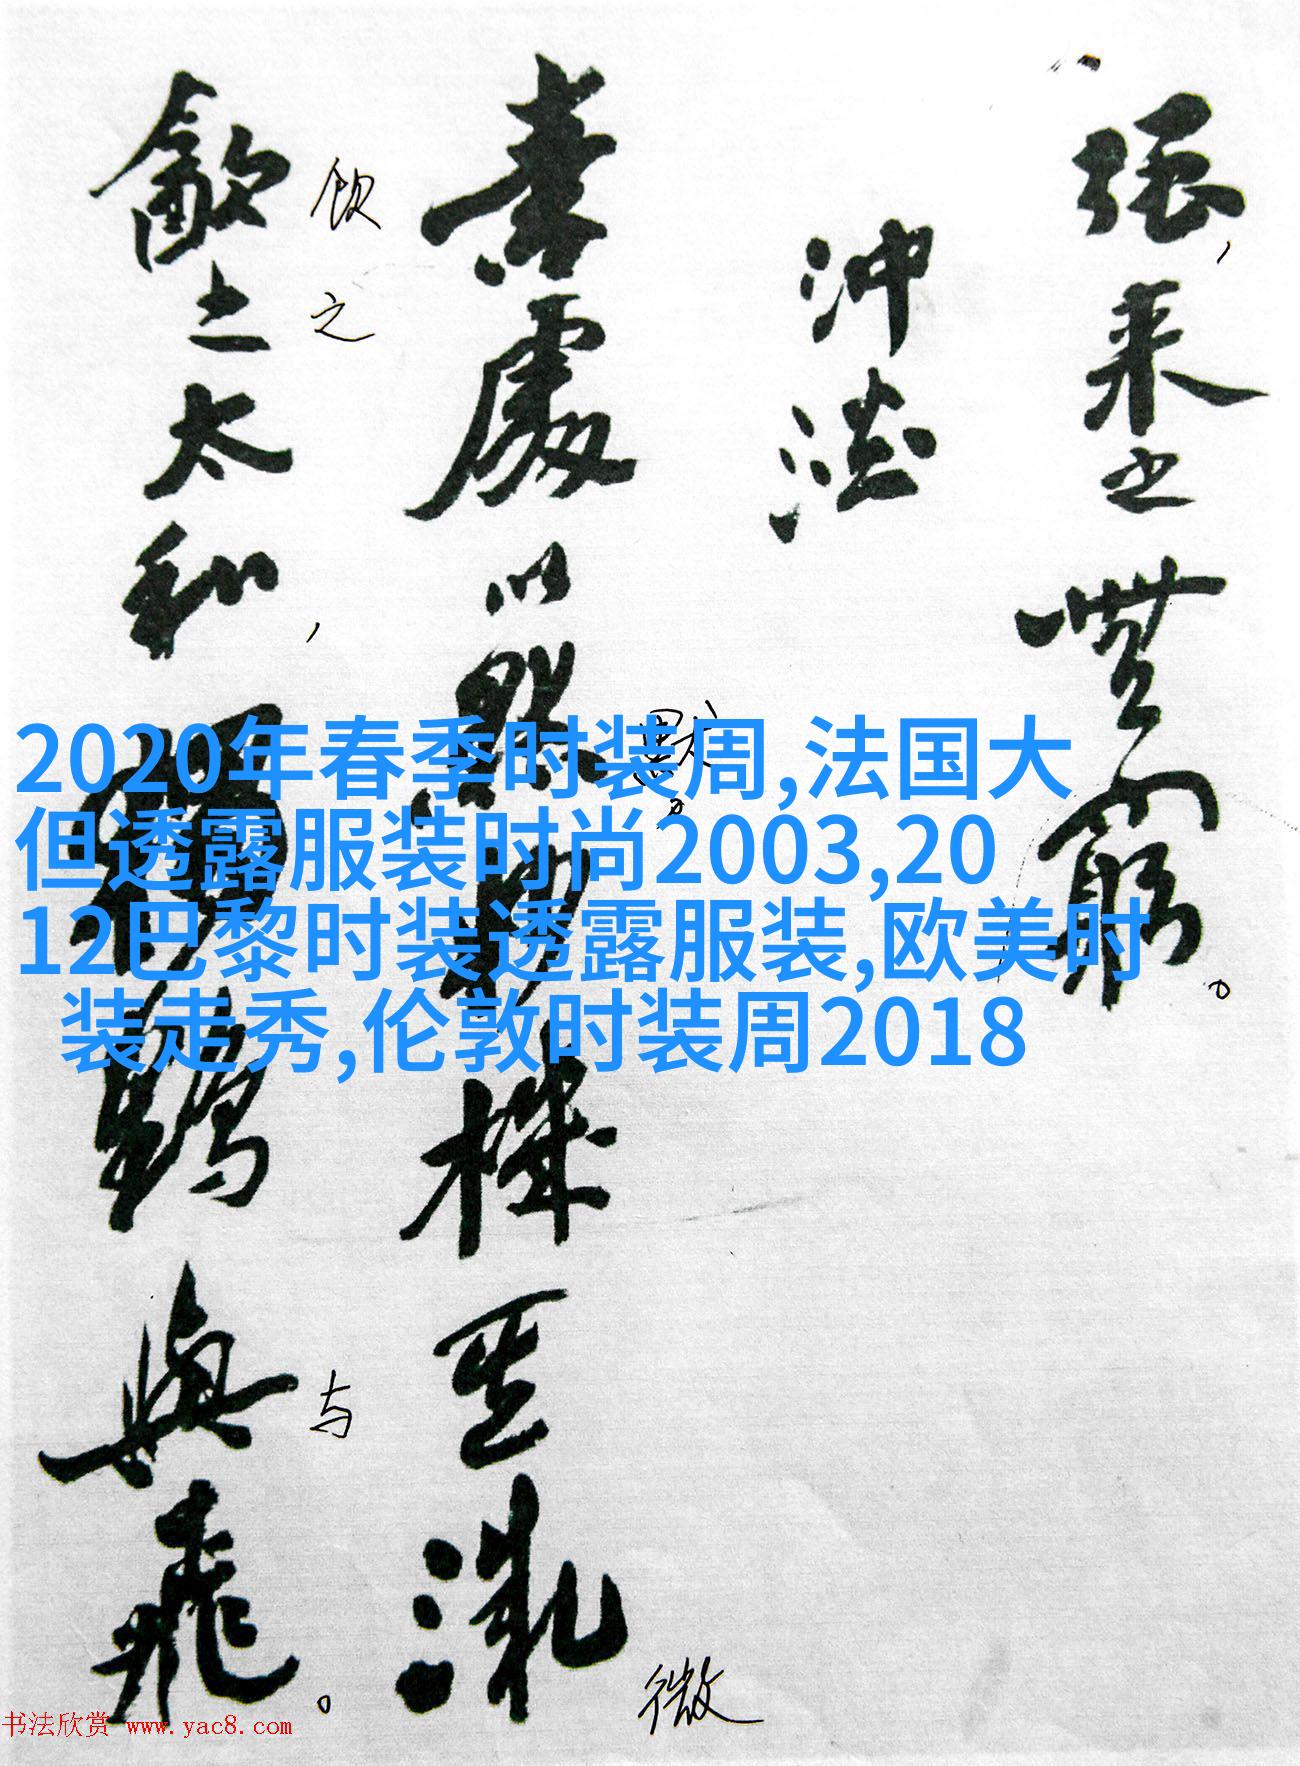 强，来之無窮。
冲淡
素處以默妙機其微
默。
微
飲之太和，獨鶴與飛。
饮之
与
2020年春季时装周,法国大
但透露服装时尚2003,20
12巴黎时装透露服装,欧美时
装走秀,伦敦时装周2018
书法欣赏 www.yac8.com